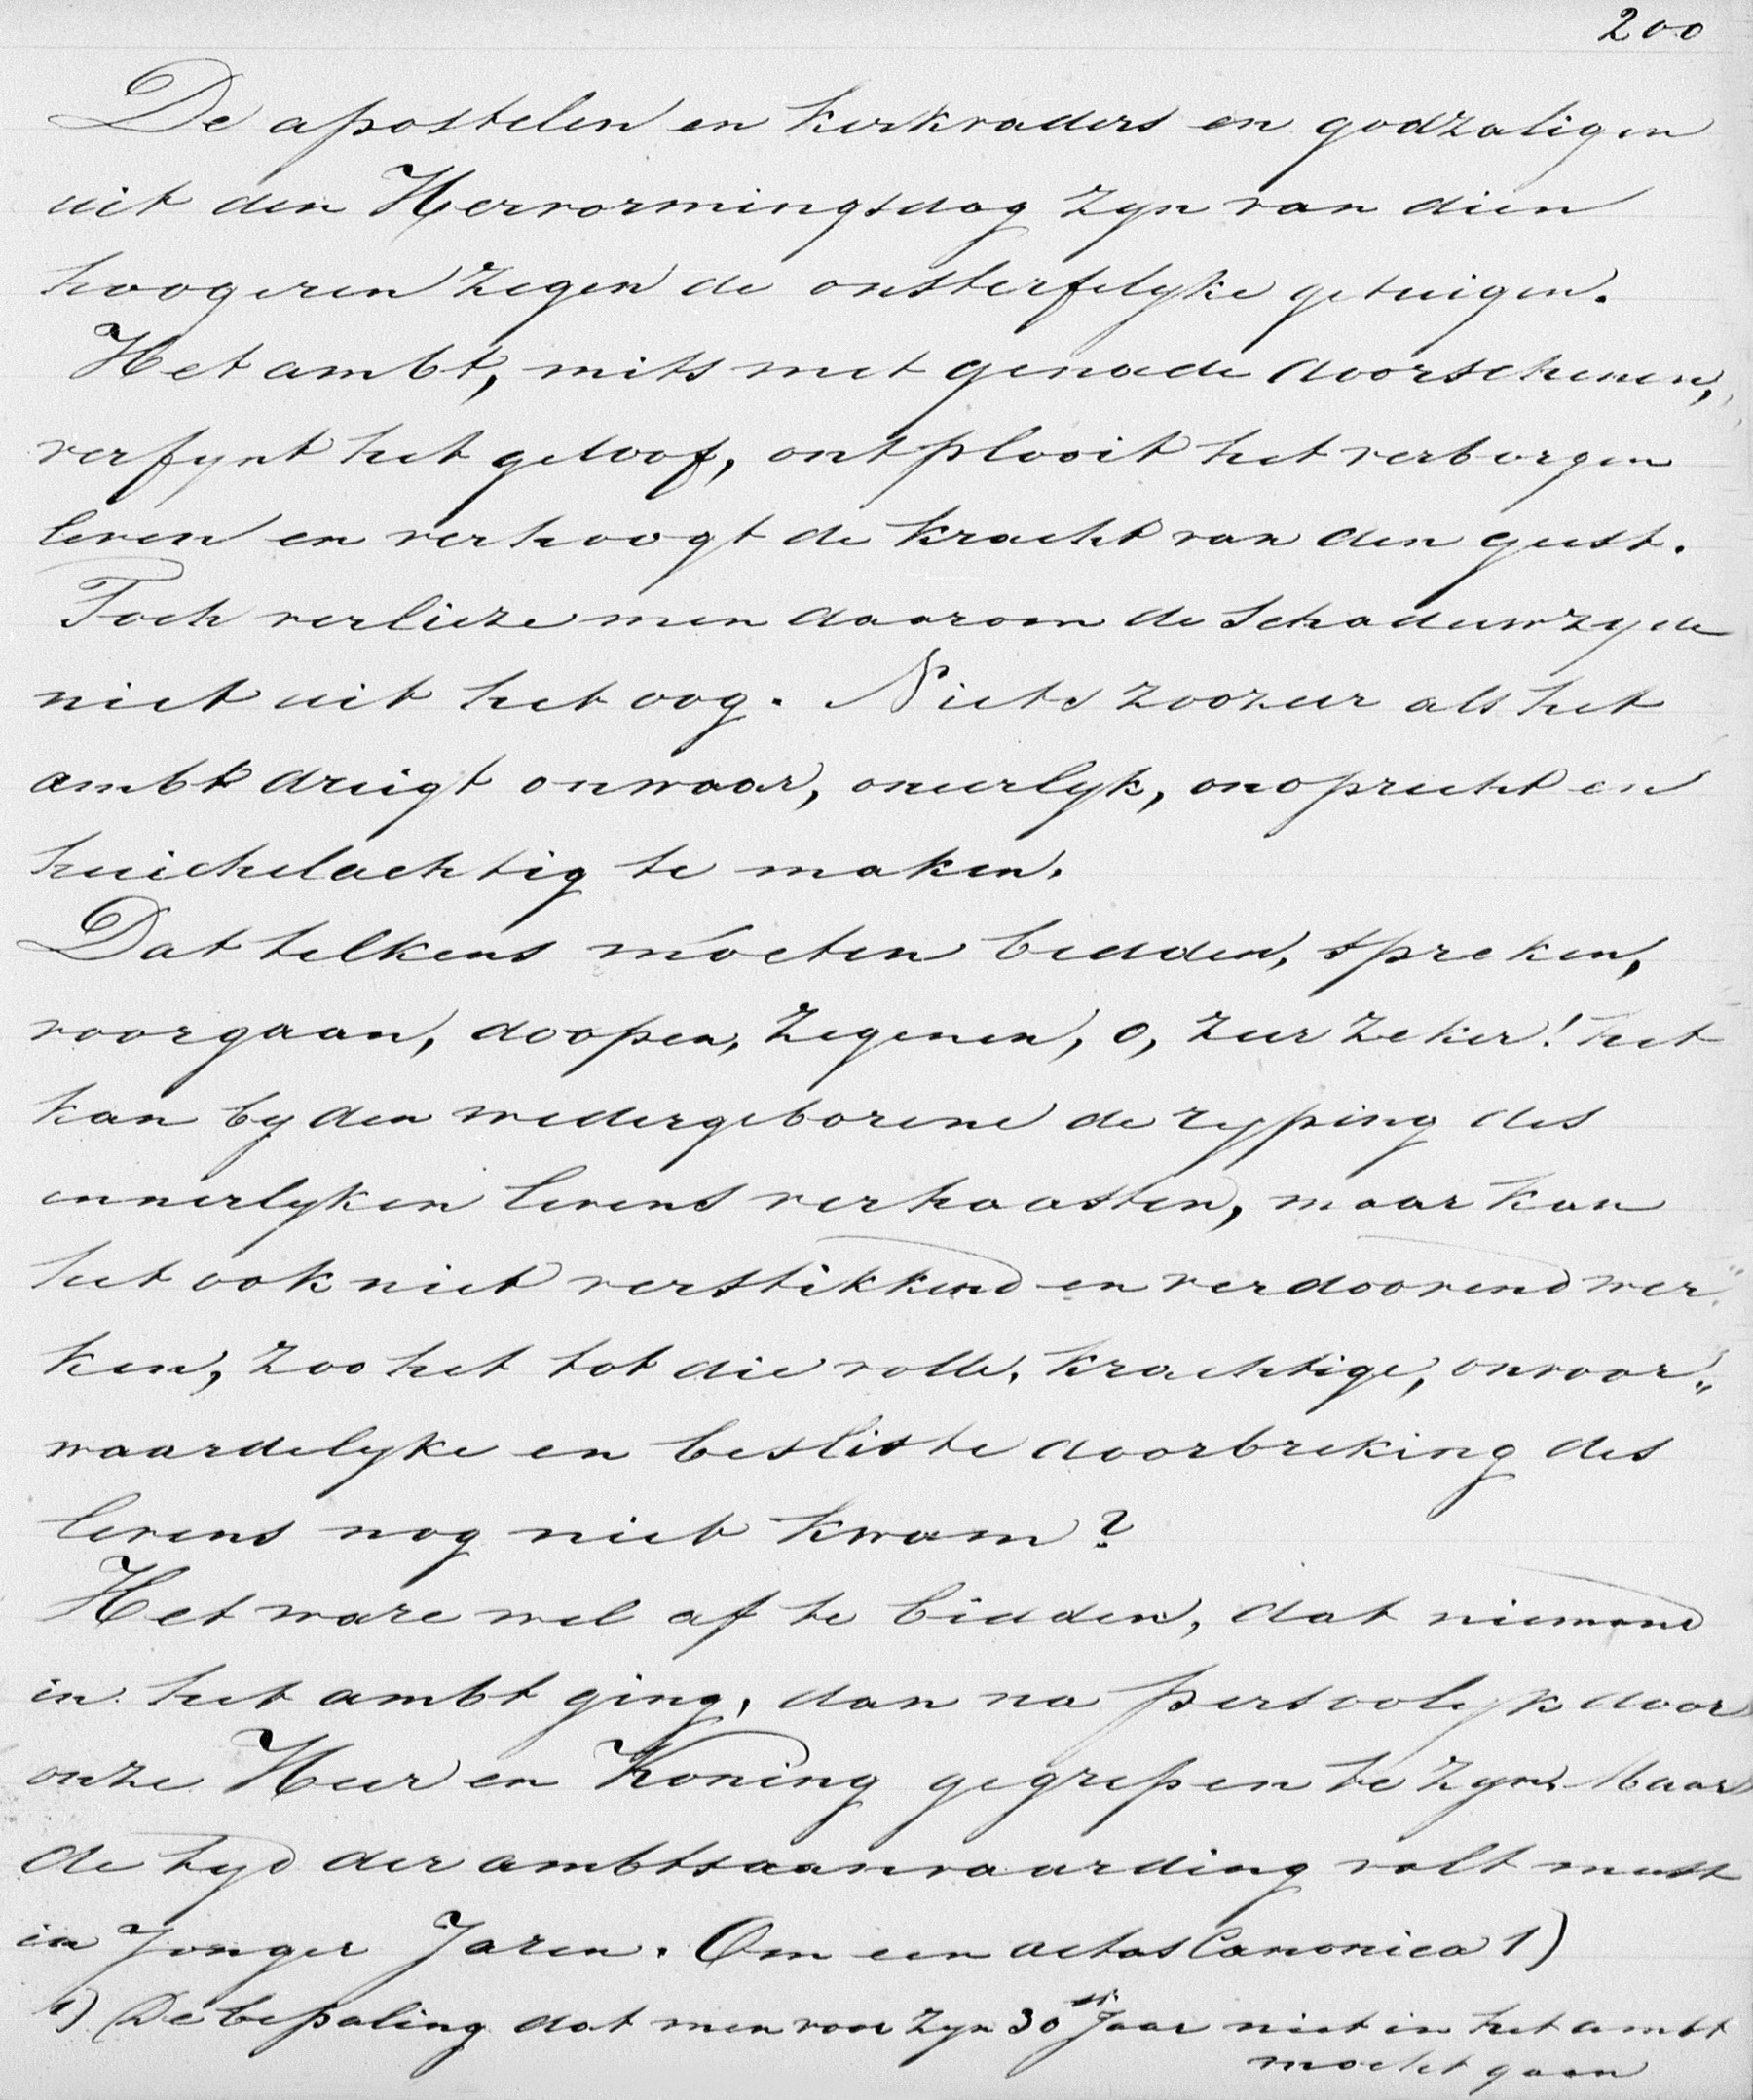 200
De apostelen en kerkvaders en godzaligen
uit den Hervormingsdag zyn van dien
hoogeren zegen de onsterfelyke getuigen.
Het ambt, mits met genade doorschenen,
verfynt het geloof, ontplooit het verborgen
leven en verhoogt de kracht van den geest.
Toch verlieze men daarom de schaduwzyde
niet uit het oog. Niets zoozeer als het
ambt dreigt onwaar, oneerlyk, onoprecht en
huichelachtig te maken.
Dat telkens moeten bedden, spreken,
voorgaan, doopen, zegenen, o, zeer zeker! het
kan by den wedergeborene de ryping des
innerlyken levens verhaasten, maar kan
het ook niet verstikkend en verdoovend wer"
ken, zoo het tot die volle, krachtige, onvoor„
waardelyke en besliste doorbreking des
levens nog niet kwam?
Het ware wel af te bidden, dat niemand
in het ambt ging, dan na persoolyk door
onze Heer en Koning gegrepen te zyn. Maar
de tyd der ambtsaanvaarding valt meest
in Jonger Jaren. Om een aetas Canonica 1)
1) De bepaling dat men voor zyn 30ste Jaar niet in het ambt
mocht gaan